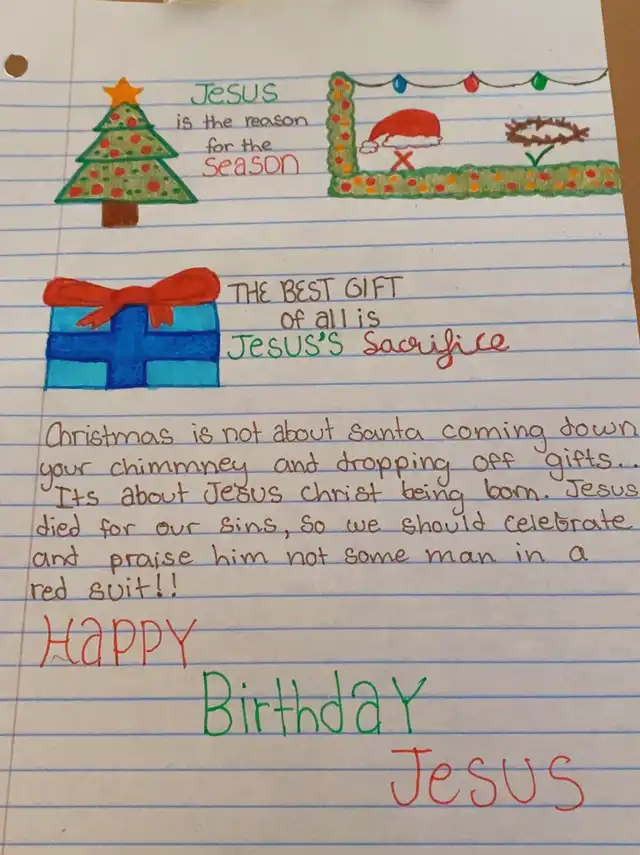 Jesus
is the reason
for the
season
THE BEST GIFT
of all is
Jesus's Sacrifice
Christmas is not about santa coming down
your chimmney and dropping off gifts...
Its about Jesus Christ being born. Jesus
died for our sins, so we should celebrate
and praise him not some man in a
red suit!!
Happy
Birthday
Jesus